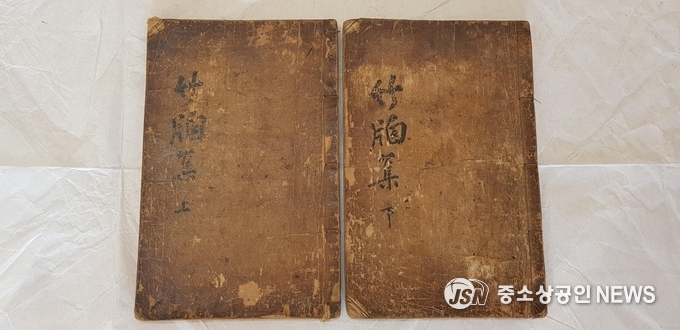 竹牕集 上
竹牕集 下
JSN 중소상공인 NEWS